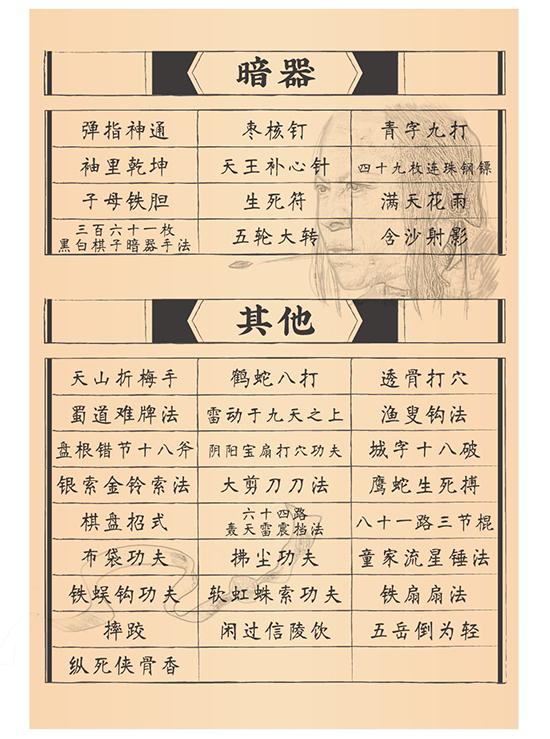 暗器
弹指神通 枣核钉 青字九打
袖里乾坤 天王补心针 四十九枚连珠钢镖
子母铁胆 生死符 满天花雨
三百六十一枚
黑白棋子暗器手法 五轮大转 含沙射影
其他
天山折梅手 鹤蛇八打 透骨打穴
蜀道难牌法 雷动于九天之上 渔叟钩法
盘根错节十八斧 阴阳宝扇打穴功夫 城字十八破
银索金铃索法 大剪刀刀法 鹰蛇生死搏
棋盘招式 六十四路
轰天雷震挡法 八十一路三节棍
布袋功夫 拂尘功夫 童家流星锤法
铁蜈钩功夫 软虹蛛索功夫 铁扇扇法
摔跤 闲过信陵饮 五岳倒为轻
纵死侠骨香